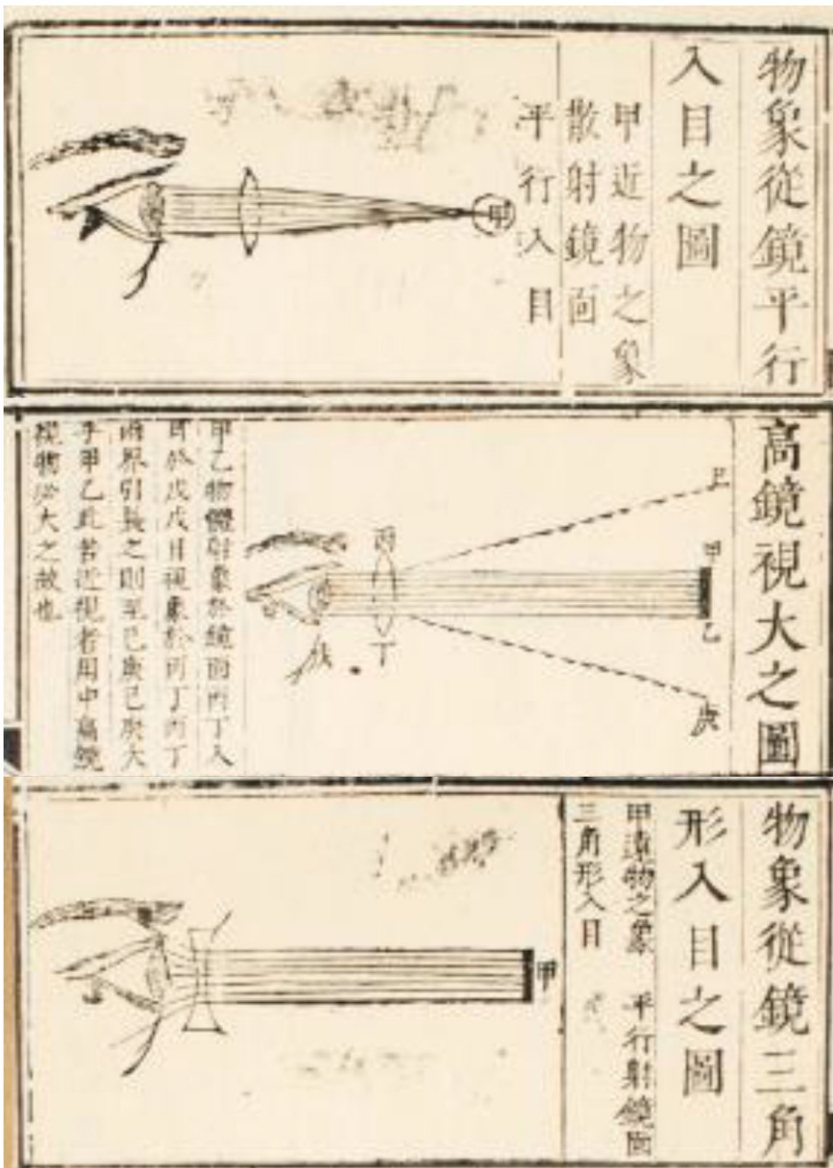 物象從鏡平行
入目之圖
甲近物之象
散射鏡面
平行入目
甲
高鏡視大之圖
己
甲
乙
庚
丙
丁
戊
甲乙物體射象於鏡面丙丁入
目於戊戊目視象於丙丁丙丁
兩界引長之則至己庚己庚大
乎甲乙此若近視者用中高鏡
視物必大之故也
物象從鏡三角
形入目之圖
甲遠物之象 平行射鏡面
三角形入目
甲